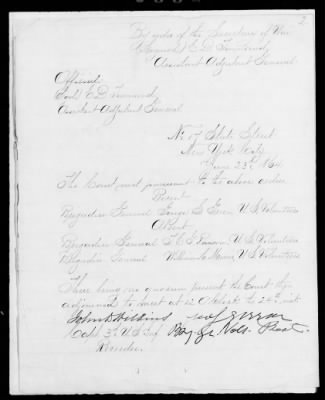 2
By order of the Secretary of War
E. D. Townsend
Assistant Adjutant General
Official
E. D. Townsend
Assistant Adjutant General
No 67 State Street
New York City
June 23d 1864
The Court met pursuant to the above order
Present
Brigadier General George S. Green, U.S. Volunteers
Absent
Brigadier General T. E. G. Ransom, U.S. Volunteers
Brigadier General William Morris, U.S. Volunteers
There being no quorum present the Court
adjourned to meet at 12 O'clock the 24th inst
John D Wilkins
Capt 3d U.S. Inf
Recorder
Brig Gr. Vols. Prest.